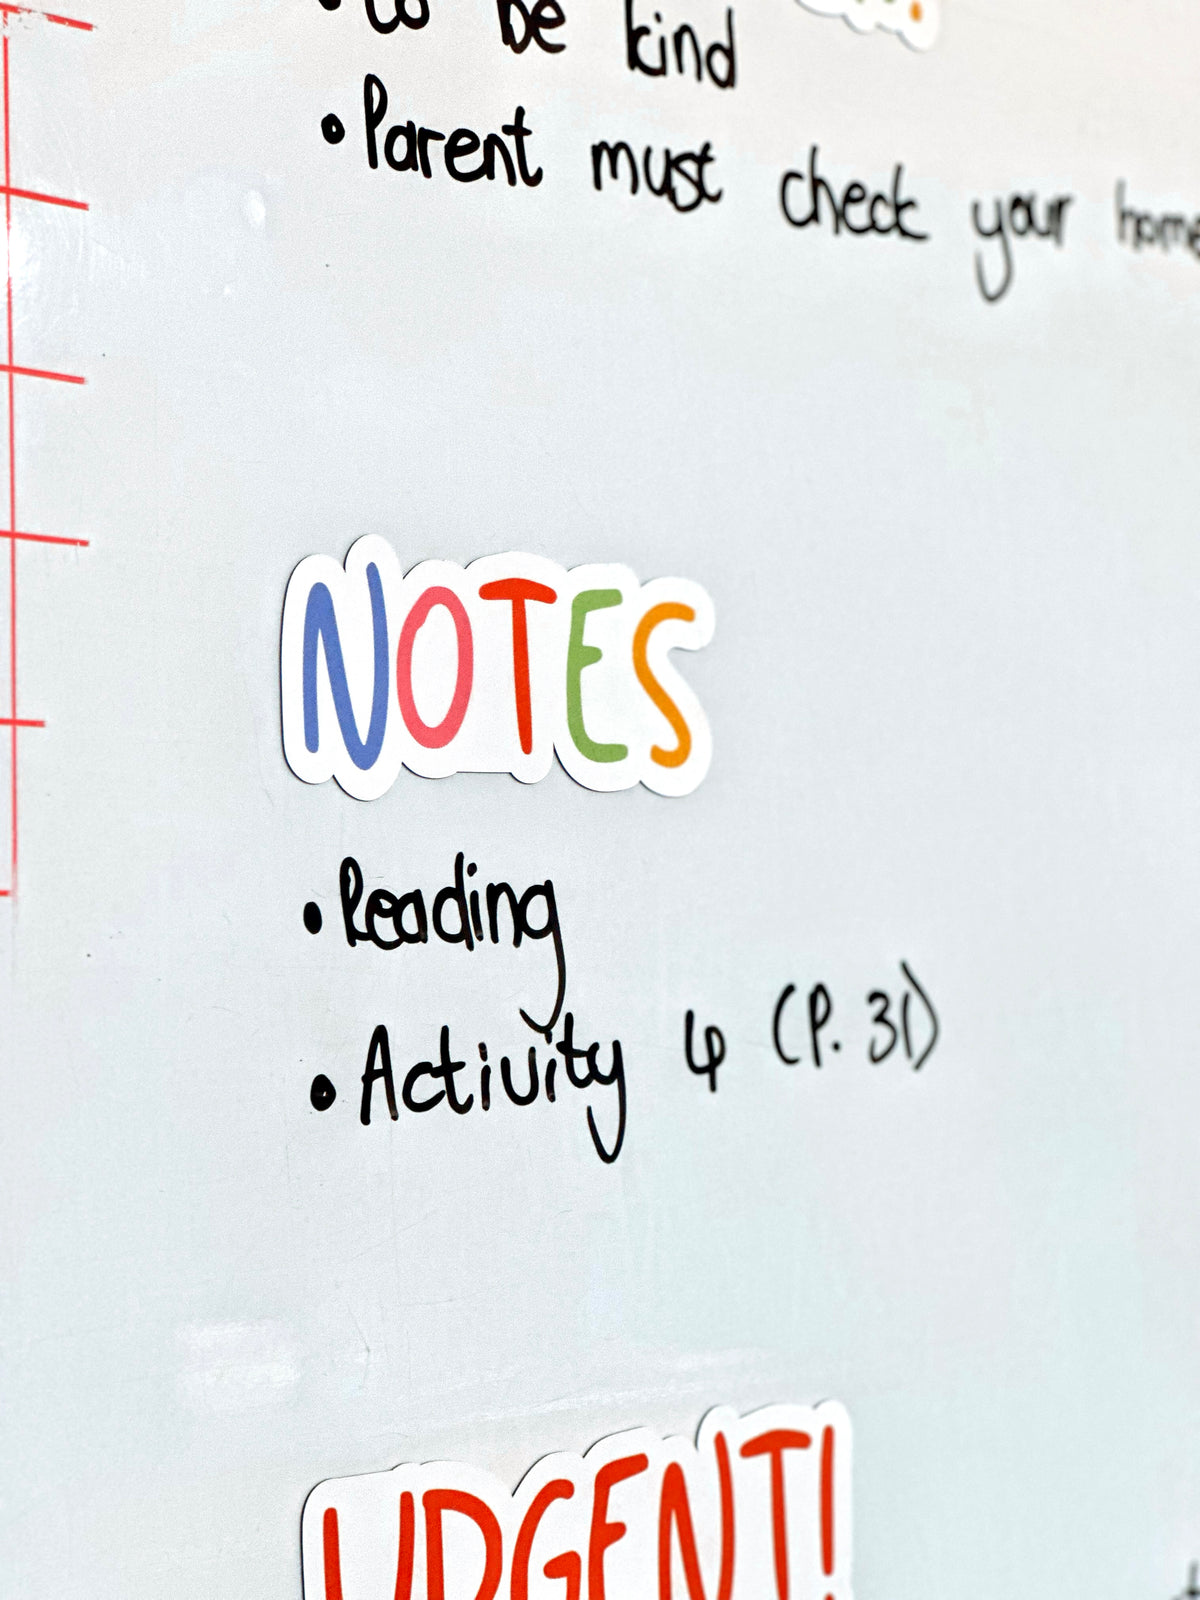 • to be kind
• Parent must check your home
NOTES
• Reading
• Activity 4 (P. 31)
URGENT!